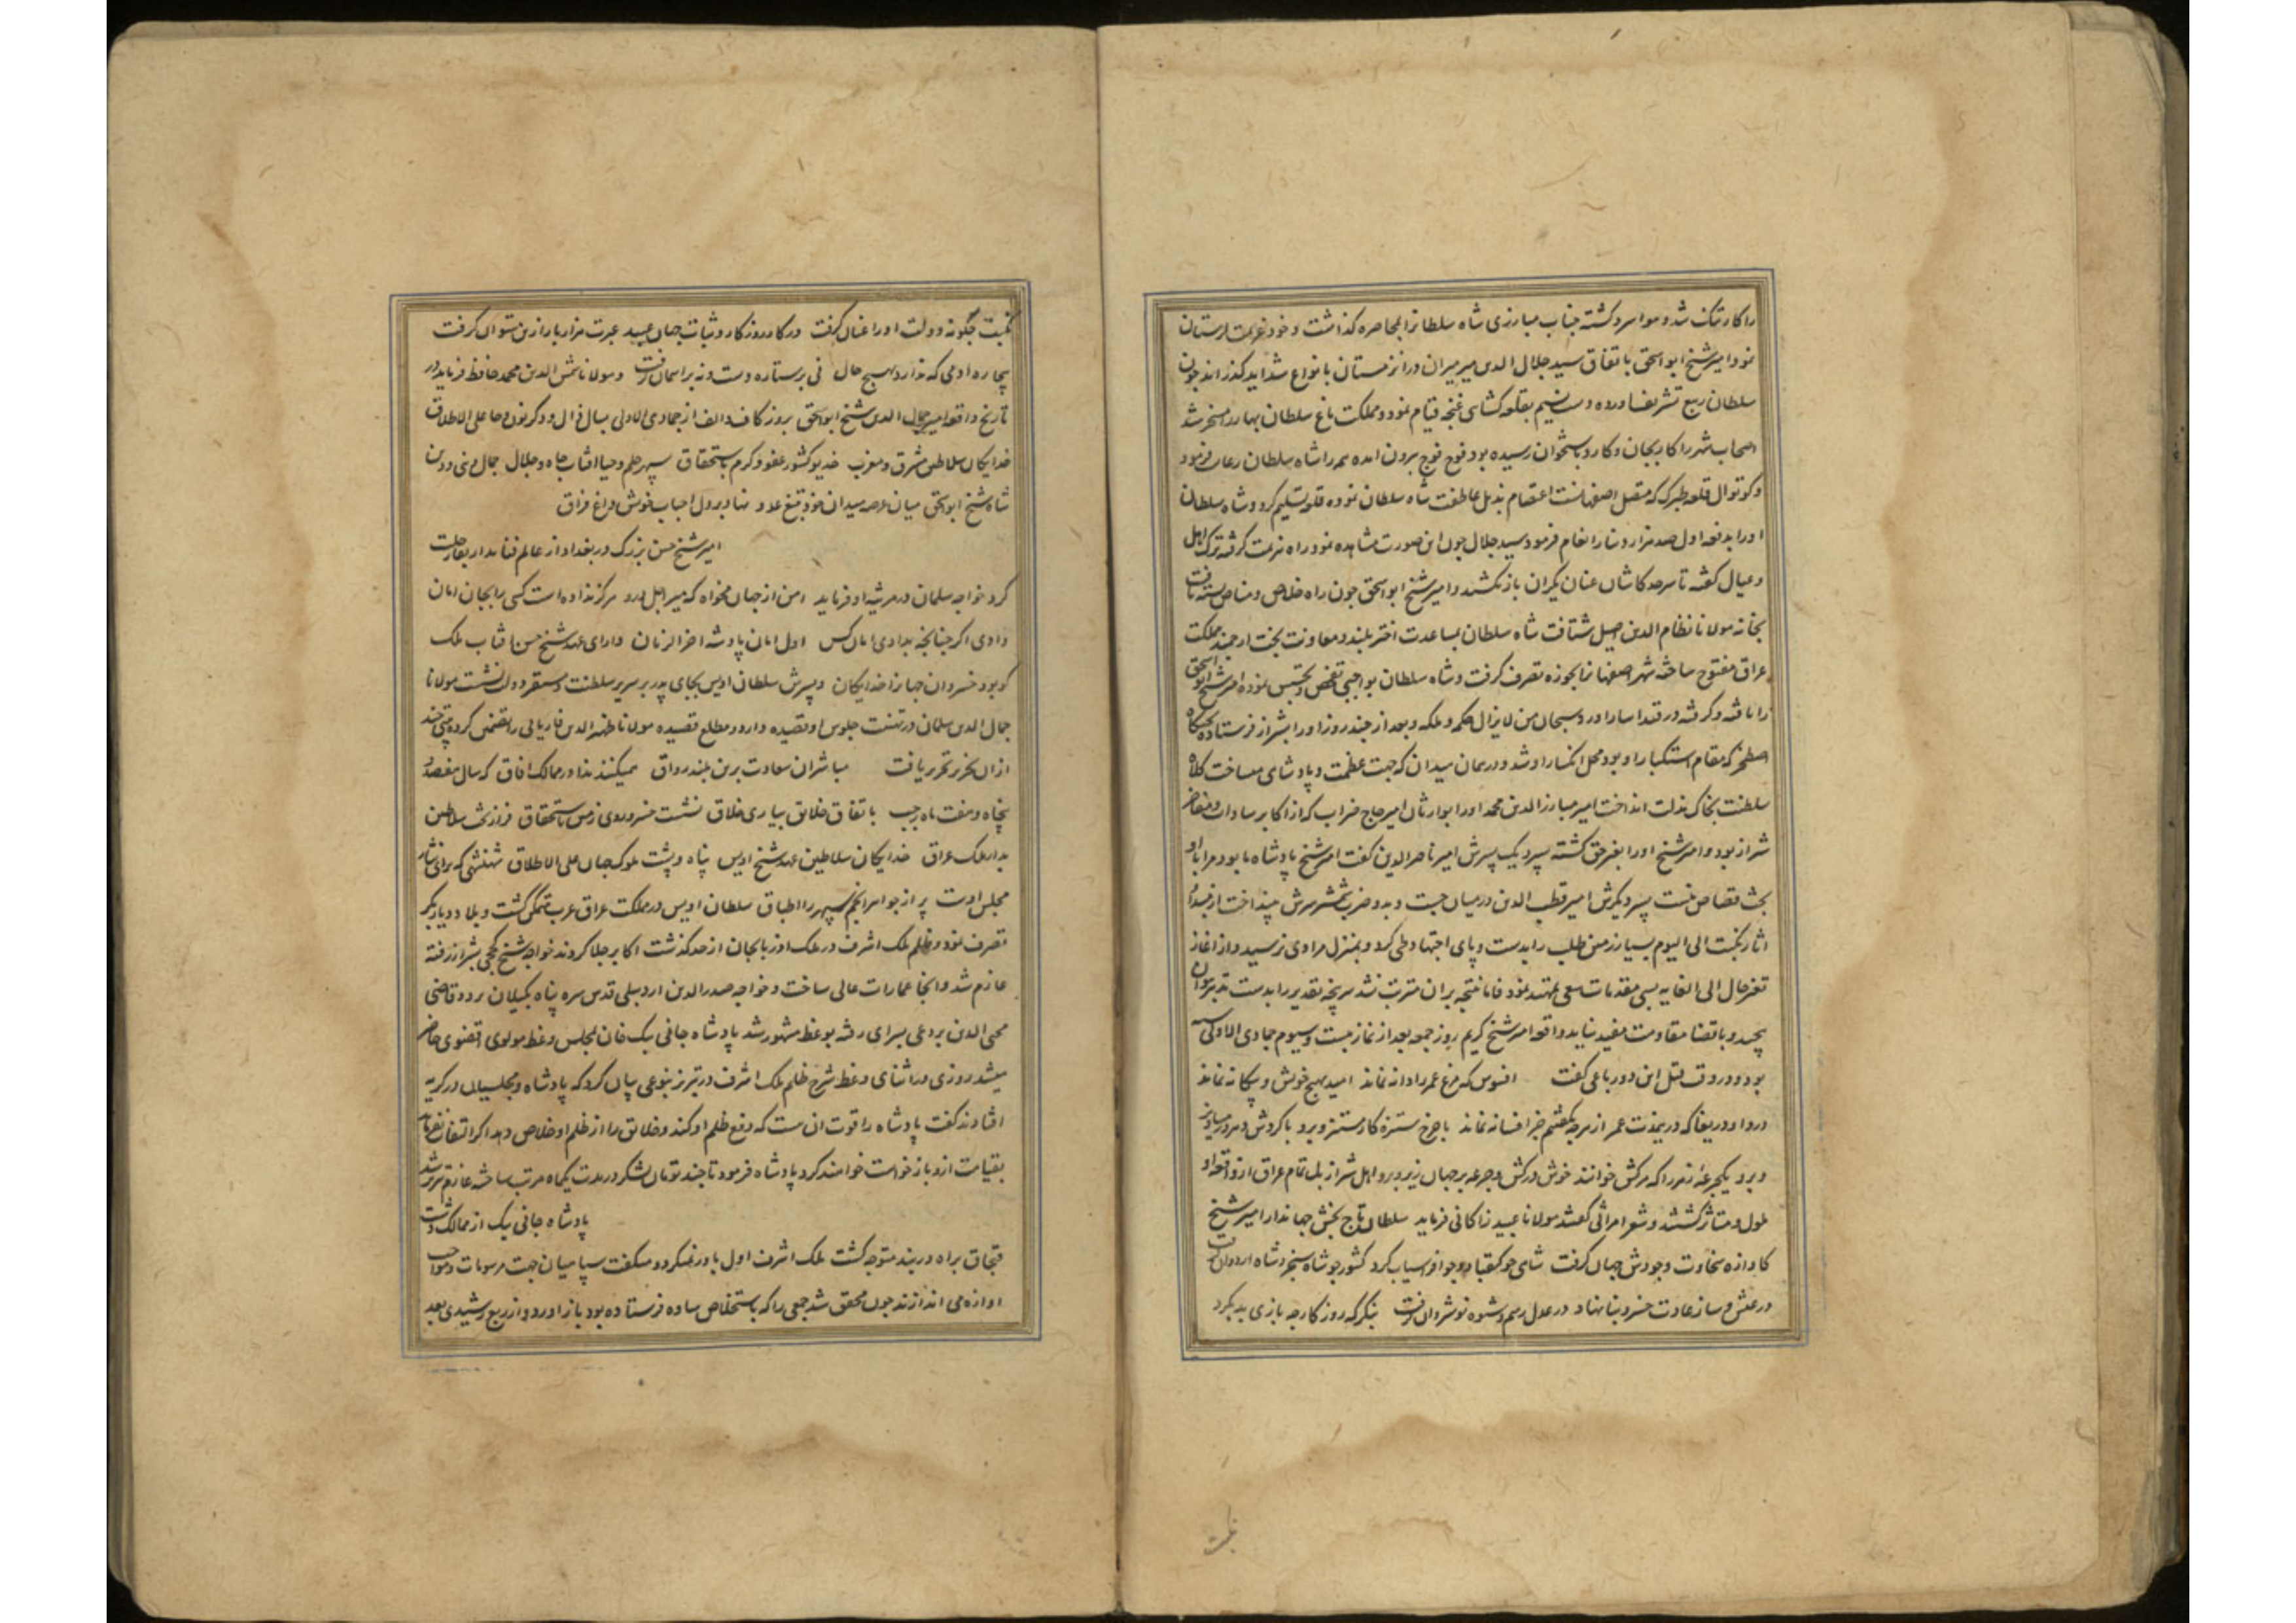 را کار تنک شد و هوا سرد کشته جناب مبارزی شاه سلطانرا بمحاصره کذاشت و خود بعزیمت لرستان
نمود امیر شیخ ابو اسحق باتفاق سید جلال الدین میر میران در ان زمستان بانواع شداید کذرانید جون
سلطان ربیع تشریف اورده و دست نسیم بقلعه کشای غنجه قیام نمود و مملکت باغ سلطان بهار را مسخر شد
اصحاب شهر را کار بجان و کارد باستخوان رسیده بود فوج فوج بیرون امده همه را شاه سلطان رعایت فرمود
و کوتوال قلعه طبرک که متصل اصفهانست اعتصام بذیل عاطفت شاه سلطان نموده قلعه تسلیم کرد و شاه سلطان
او را بدفعه اول صد هزار دینار انعام فرمود سید جلال جون این صورت مشاهده نمود راه هزیمت کرفته ترک اهل
و عیال کفته تا سرحد کاشان عنان یکران باز نکشید و امیر شیخ ابو اسحق جون راه خلاص و مناص بسته یافت
بخانه مولانا نظام الدین اصیل شتافت شاه سلطان بمساعدت اختر بلند و معاونت بخت ارجمند مملکت
عراق مفتوح ساخته شهر اصفهانرا بحوزه تصرف کرفت و شاه سلطان بواجبی تفحص و تجسس نموده امیر شیخ ابو اسحق
را یافته و کرفته در قید اسار اورد سبحان من لا یزال حکمه و ملکه و بعد از جند روز او را بشیراز فرستاده تختکاه
اصطخر که مقام استکبار او بود محل انکسار او شد و در همان میدان که جهت عظمت و پادشاهی میساخت کلاه
سلطنت بخاک مذلت انداخت امیر مبارز الدین محمد او را بوارثان امیر حاج ضراب که از اکابر سادات و مفاخر
شیراز بود و امیر شیخ او را بغیر حق کشته سپرد یک پسرش امیر ناصر الدین کفت امیر شیخ پادشاه ما بود مرا با او
بحث قصاص نیست پسر دیکرش امیر قطب الدین در میان جست و بدو ضرب شمشیر سرش بینداخت از مبدا
اثار نکبت الی الیوم بسیار زمین طلب را بدست و پای اجتهاد طی کرد و بمنزل مرادی نرسید و از اغاز
تغیر حال الی الغایه بسی مقدمات سعی تمهید نمود فاما نتیجه بران مترتب نشد سرپنجه تقدیر را بدست تدبیر نتوان
پیچید و با قضا مقاومت مفید نیاید واقعه امیر شیخ کریم روز جمعه بعد از نماز بیست و سیوم جمادی الاولی
بود و در وقت قتل این دو رباعی کفت افسوس که مرغ عمر را دانه نماند امید بهیچ خویش و بیکانه نماند
دردا و دریغا که درین مدت عمر از هر چه بکفتیم جز افسانه نماند با جرخ ستیزه کار مستیز و برو با کردش دهر در میاویز
و برو یکجرعه زهر را که مرکش خوانند خوش درکش و جرعه بر جهان ریز و برو اهل شیراز بلکه تمام عراق از واقعه او
ملول و متاثر کشتند و شعرا مراثی کفتند مولانا عبید زاکانی فرماید سلطان تاج بخش جهاندار امیر شیخ
کاوازه سخاوت و جودش جهان کرفت شاهی جو کیقباد و جو افراسیاب کرد کشور جو شاه سنجر و شاه اردوان کرفت
در عیش و ساز عادت خسرو بنا نهاد در عدل رسم و شیوه نوشیروان کرفت بنکر که روزکار جه بازی بدید کرد
نکبت
نکبت جکونه دولت او را عنان کرفت در کار روزکار و ثبات جهان عبید عبرت هزار بار ازین میتوان کرفت
بیچاره ادمی که ندارد بهیچ حال نی بر ستاره دست و نه بر اسمان کرفت و مولانا شمس الدین محمد حافظ فرماید در
تاریخ واقعه امیر جمال الدین شیخ ابو اسحق بروز کاف و الف از جمادی الاولی بسال ذال و دکر نون و حا علی الاطلاق
خدایکان سلاطین مشرق و مغرب خدیو کشور عفو و کرم باستحقاق سپهر حلم و حیا افتاب جاه و جلال جمال دنیی و دین
شاه شیخ ابو اسحق میان عرصه میدان خود بتیغ عدو نهاد بر دل احباب خویش داغ فراق
امیر شیخ حسن بزرک در بغداد از عالم فنا بدار بقا رحلت
کرد خواجه سلمان در مرثیه او فرماید امن از جهان مخواه که میر اجل درو هرکز نداده است کسی را بجان امان
دادی اکر جنانجه بدادی امان کس اول امان پادشه اخر الزمان دارای عهد شیخ حسن افتاب ملک
کو بود خسروان جهانرا خدایکان و پسرش سلطان اویس بجای پدر بر سریر سلطنت و مستقر دولت نشست مولانا
جمال الدین سلمان در تهنیت جلوس او قصیده دارد و مطلع قصیده مولانا ظهیر الدین فاریابی را تضمین کرده بیتی جند
از ان تحریر یافت مباشران سعادت برین بلند رواق همیکنند ندا در ممالک افاق که سال هفصد
پنجاه و هفت ماه رجب باتفاق خلایق بیاری خلاق نشست خسرو روی زمین باستحقاق فراز تخت سلاطین
بدار ملک عراق خدایکان سلاطین عهد شیخ اویس پناه و پشت ملوک جهان علی الاطلاق شهنشهی که برای نثار
مجلس اوست پر از جواهر انجم سپهر را اطباق سلطان اویس در مملکت عراق عرب متمکن کشت و بلاد دیار بکر
تصرف نمود و ظلم ملک اشرف در ملک اذربایجان از حد کذشت اکابر جلا کردند خواجه شیخ کججی بشیراز رفته
عازم شد و انجا عمارات عالی ساخت و خواجه صدر الدین اردبیلی قدس سره پناه بکیلان برد و قاضی
محیی الدین بردعی بسرای رفته بوعظ مشهور شد پادشاه جانی بیک خان بمجلس وعظ مولوی اقضوی حاضر
میشد روزی در اثنای وعظ شرح ظلم ملک اشرف در تبریز بنوعی بیان کرد که پادشاه و مجلسیان در کریه
افتادند کفت پادشاه را قوت ان هست که دفع ظلم او کند و خلایق را از ظلم او خلاص دهد اکر التفات نفرماید
بقیامت ازو باز خواست خواهند کرد پادشاه فرمود تا جند تومان لشکر در مدت یکماه مرتب ساخته عازم تبریز شد
پادشاه جانی بیک از ممالک دشت
قبجاق براه دربند متوجه کشت ملک اشرف اول باور نمیکرد و میکفت سپاهیان جهت مرسومات و مواجب
اوازه می اندازند جون محقق شد جمعی را که باستخلاص ساده فرستاده بود باز اورد و از ربع رشیدی بعد